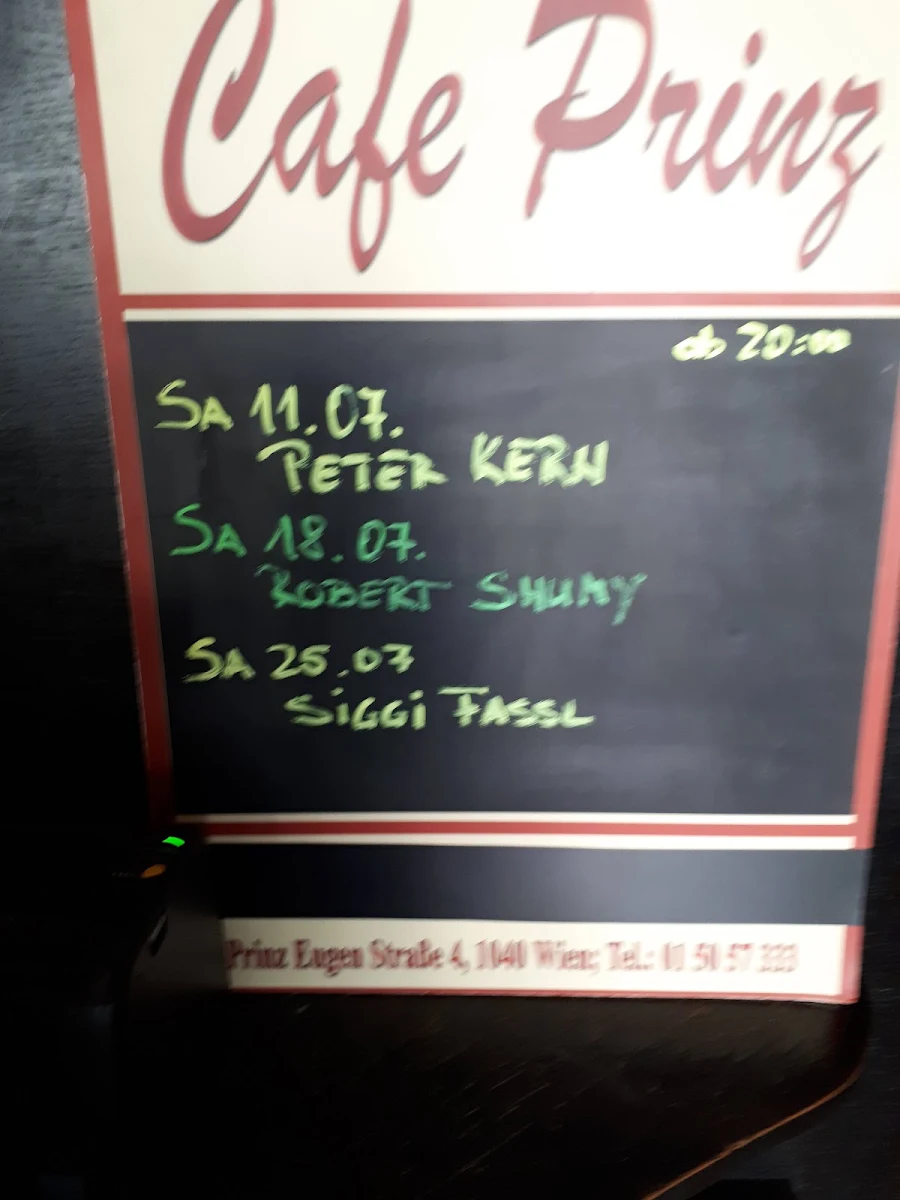 Cafe Prinz
ab 20:00
SA 11.07.
PETER KERN
SA 18.07.
ROBERT SHUMY
SA 25.07
SIGGI FASSL
Prinz Eugen Straße 4, 1040 Wien; Tel.: 01 50 57 333